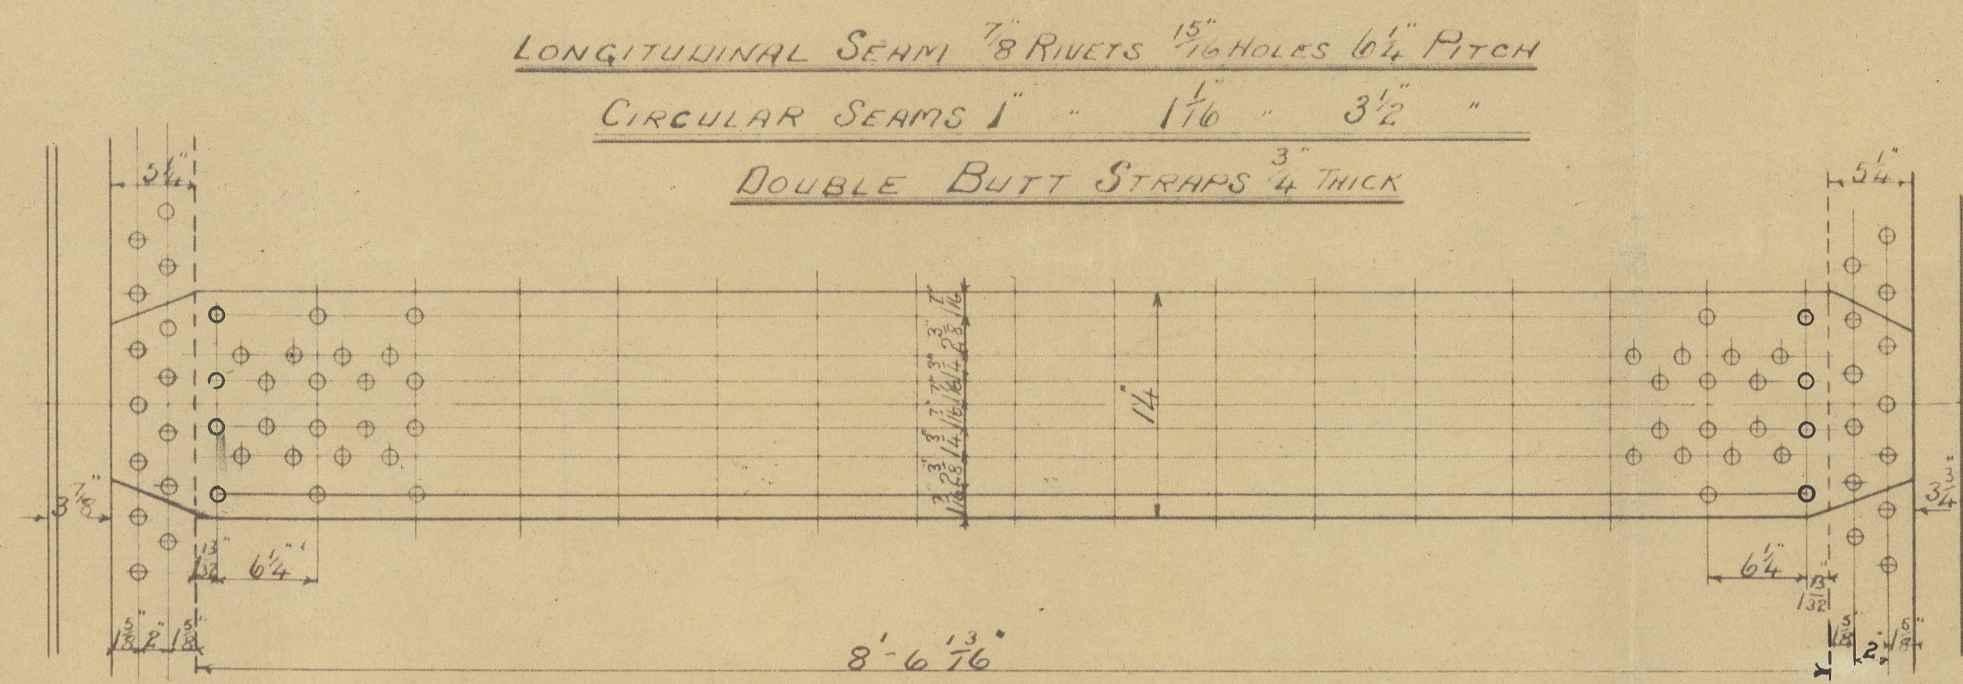 LONGITUDINAL SEAM 7/8" RIVETS 15/16" HOLES 6 1/4" PITCH
CIRCULAR SEAMS 1" " 1 1/16" " 3 1/2" "
DOUBLE BUTT STRAPS 3/4" THICK
5 1/4"
5 1/4"
1 7/16"
2 3/8"
1 3/4"
1 7/16"
1 7/16"
1 3/4"
2 3/8"
1 7/16"
14"
3 7/8"
3 3/4"
1 13/32"
6 1/4"
6 1/4"
1 13/32"
1 5/8" 2" 1 5/8"
8'-6 13/16"
1 5/8" 2" 1 5/8"